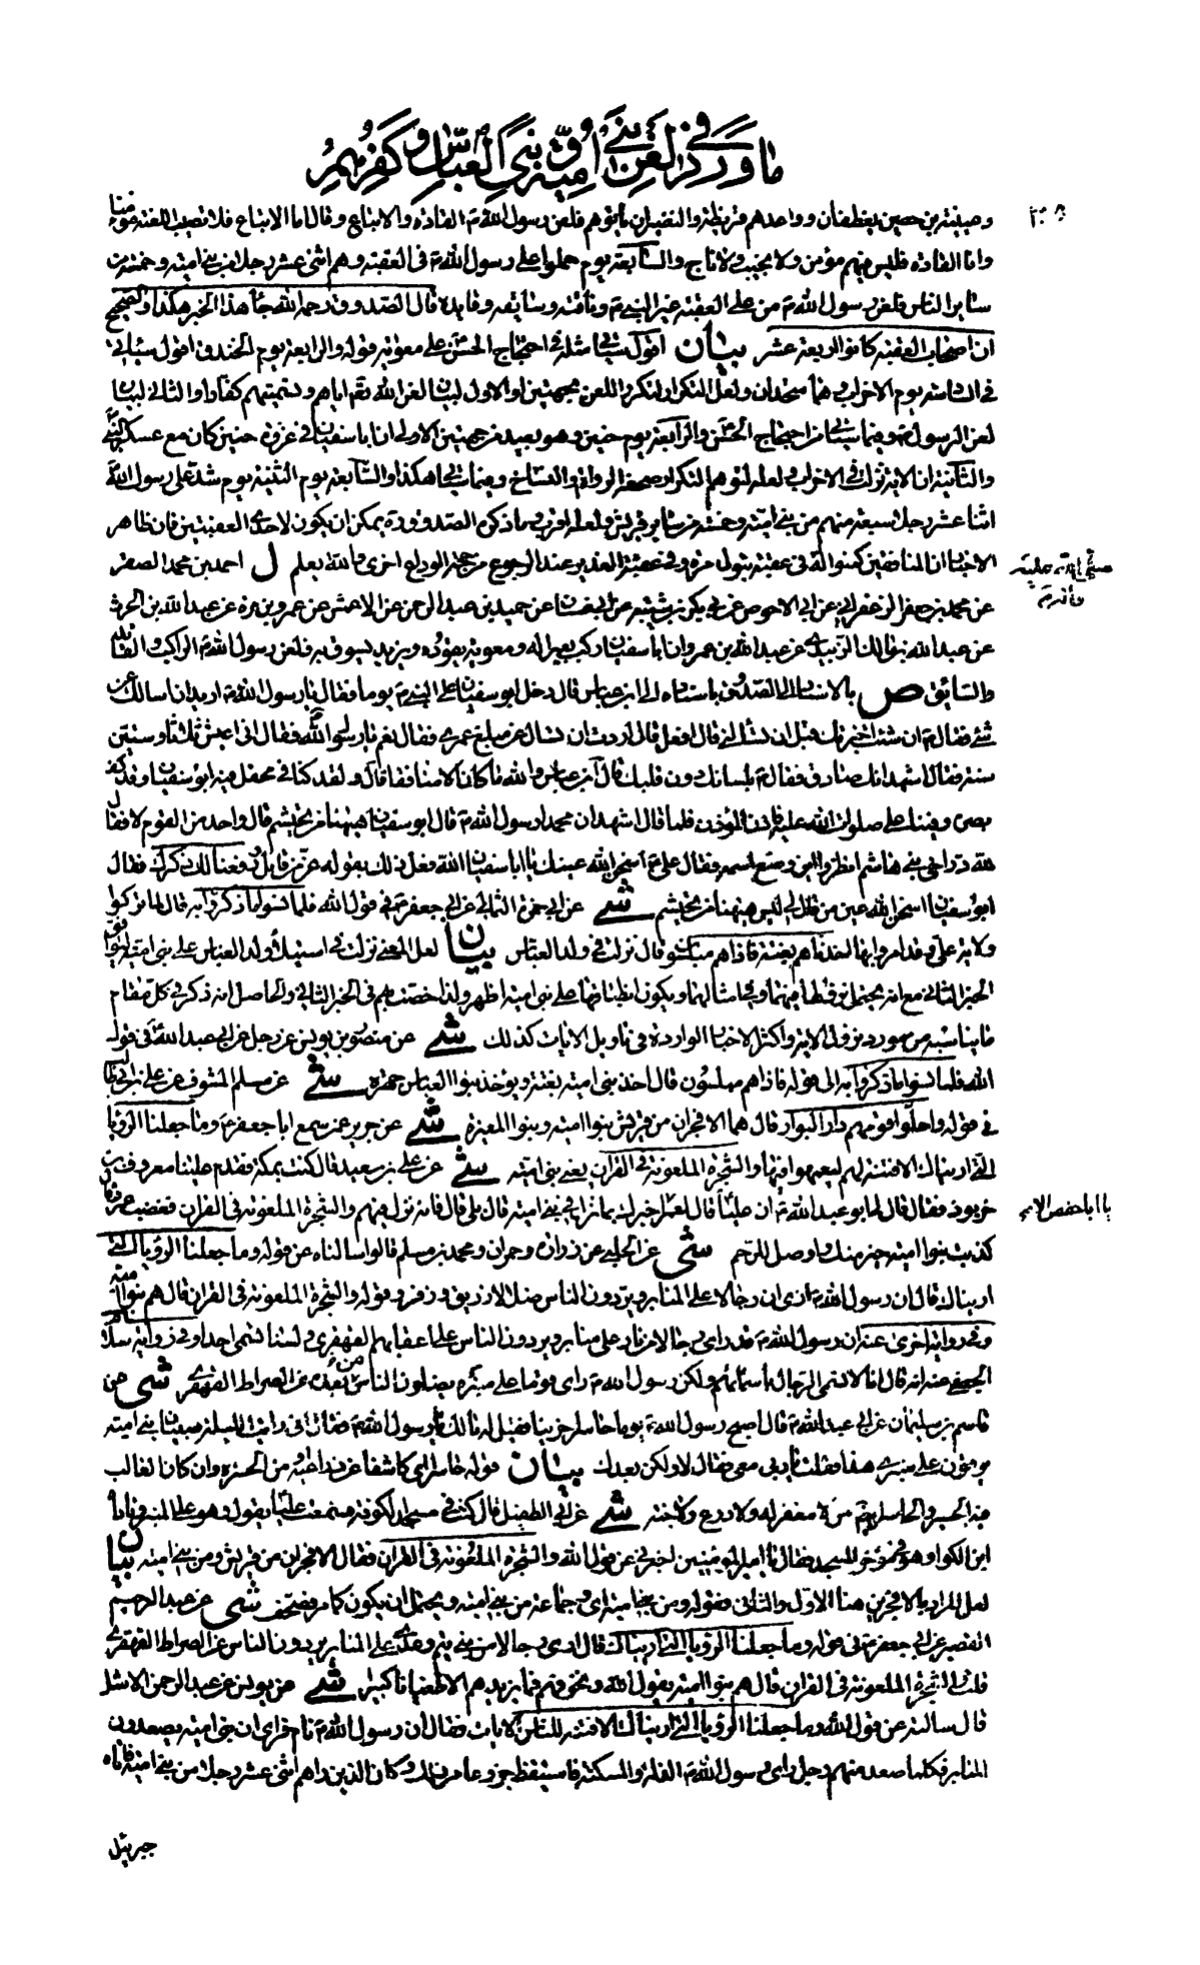 ما ورد في لعن بني أمية وبني العباس وكفرهم
وعيينة بن حصين بغطفان وواعدهم قريظة والنضير ان يأتوهم فلعن رسول الله ص القادة والاتباع وقال اما الاتباع فلا تصيب اللعنة مؤمنا
واما القادة فليس فيهم مؤمن ولا مجيب ولا ناج والسابعة يوم حملوا على رسول الله ص فى العقبة وهم اثنى عشر رجلا من بني امية وخمسة من
سائر الناس فلعن رسول الله ص من على العقبة غير النبي ص وناقته وسائقه وقايده قال الصدوق رحمه الله جاء هذا الخبر هكذا والصحيح
ان اصحاب العقبة كانوا اربعة عشر بيان اقول سيأتي مثله في احتجاج الحسن على معوية قوله والرابعة يوم الخندق اقول سيأتي
في الخامسة يوم الاحزاب وهما متحدان ولعل التكرار لتكرر اللعن بجهتين او الاول لبيان لعن الله تعالى اياهم وتسميتهم كفارا والثاني لبيان
لعن الرسول ص وفيما سيأتي من احتجاج الحسن والرابعة يوم حنين وهو بعيد من جهتين الاولى ان ابا سفيان في غزوة حنين كان مع عسكر النبي
والثانية ان الاية نزلت في الاحزاب لعله لتوهم التكرار صحفه الرواة والنساخ وفيما سيأتي هكذا والسابعة يوم الثنية يوم شد على رسول الله
اثنا عشر رجلا سبعة منهم من بني امية وخمسة من سائر قريش ولعله اقرب وما ذكره الصدوق ره يمكن ان يكون لاحدى العقبتين فان ظاهر
الاخبار ان المنافقين كمنوا له فى عقبة تبوك مرة وفي عقبة الغدير عند الرجوع من حجة الوداع اخرى والله يعلم ل احمد بن محمد الصقر
عن محمد بن جعفر الزعفراني عن ابي الاحوص عن ابي بكر بن شيبة عن ابي غسان عن حميد بن عبد الرحمن عن الاعمش عن عمرو بن مرة عن عبد الله بن الحرث
عن عبد الله بن مالك الزبيدي عن عبد الله بن عمر وان ابا سفيان ركب بعيرا له ومعوية يقوده ويزيد يسوق به فلعن رسول الله ص الراكب والقائد
والسائق ص بالاسناد الى الصدوق باسناده الى ابن عباس قال دخل ابو سفيان على النبي ص يوما فقال يا رسول الله ص اريد ان اسالك عن
شئ فقال ص ان شئت اخبرتك قبل ان تسئلني قال افعل قال اردت ان تسال عن مبلغ عمري فقال نعم يا رسول الله فقال اني اعيش ثلثا وستين
سنة فقال اشهد انك صادق فقال ص بلسانك دون قلبك قال ابن عباس والله ما كان الا منافقا قال ولقد كنا في محفل فيه ابو سفيان وقد كف
بصره وفينا علي صلوات الله عليه فاذن المؤذن فلما قال اشهد ان محمدا رسول الله ص قال ابو سفيان هيهنا من يحتشم قال واحد من القوم لا فقال
لله در اخي بني هاشم انظروا اين وضع اسمه فقال علي ع اسخن الله عينك يا ابا سفيان الله فعل ذلك بقوله عز من قائل ورفعنا لك ذكرك فقال
ابو سفيان اسخن الله عين من قال لي ليس هيهنا من يحتشم شى عن ابي حمزة الثمالي عن ابي جعفر ع فى قول الله فلما نسوا ما ذكروا به قال لما تركوا
ولاية علي وقد امروا بها اخذناهم بغتة فاذاهم مبلسون قال نزلت في ولد العباس بيان لعل المعنى نزلت في استيلاء ولد العباس على بني امية
الخبر الثاني مع انه يحتمل ويكون انطباقها على بني امية اظهر ولذا خصت بهم فى الخبر الثاني والحاصل انه ذكر في كل مقام
ما يناسبه من مورد نزول الاية واكثر الاخبار الواردة في تاويل الايات كذلك شى عن منصور بن يونس عن رجل عن ابي عبد الله ع في قول
الله فلما نسوا ما ذكروا به الى قوله فاذاهم مبلسون قال اخذ بني امية بغتة ويؤخذ بنوا العباس جهرة شى عن مسلم المشوف عن علي بن ابي طالب
في قوله واحلوا قومهم دار البوار قال هما الافجران من قريش بنوا امية وبنوا المغيرة شى عن حريز عمن سمع ابا جعفر ع وما جعلنا الرؤيا
التي اريناك الا فتنة لهم ليعمهوا فيها والشجرة الملعونة فى القران يعني بني امية شى عن علي بن سعيد قال كنت بمكة فقدم علينا معروف بن
خربوذ فقال قال لي ابو عبد الله ع ان عليا ع قال لعمر الا اخبرك بما نزل في بني امية قال بلى قال فانه نزل فيهم والشجرة الملعونة فى القران فغضب عمر وقال
كذبت بنوا امية خير منك واوصل للرحم شى عن الحلبي عن زرارة وحمران ومحمد بن مسلم قالوا سالناه عن قوله وما جعلنا الرؤيا التي
اريناك قال ان رسول الله ص ارى ان رجالا على المنابر يردون الناس ضلالا زريق وزفر وقوله والشجرة الملعونة فى القران قال هم بنوا امية
وفي رواية اخرى عنه ان رسول الله ص قد راى رجالا من نار على منابر يردون الناس على اعقابهم القهقرى ولسنا نسمي احدا وفي رواية سلام
الجعفي عنه انه قال انا لا نسمي الرجال باسمائهم ولكن رسول الله ص راى قوما على منبره يضلون الناس بعده عن الصراط القهقرى شى عن
قاسم بن سليمان عن ابي عبد الله ع قال اصبح رسول الله ص يوما حاسرا حزينا فقيل له مالك يا رسول الله ص فقال انى رايت الليلة صبيان بني امية
يرقون على منبري هذا فقلت يا ربي معي فقال لا ولكن بعدك بيان قوله حاسرا اى كاشفا عن ذراعيه من الحسرة وان كان الغالب
فيه الحسير والحاسر ايضا من لا مغفر له ولا درع ولا جنة شى عن ابي الطفيل قال كنت في مسجد الكوفة فسمعت عليا ع يقول وهو على المنبر وناداه
ابن الكوا وهو في مؤخر المسجد فقال يا امير المؤمنين اخبرني عن قول الله والشجرة الملعونة فى القران فقال الافجران من قريش ومن بني امية بيان
لعل المراد بالافجرين هنا الاول والثاني وقوله ومن بني امية اى وجماعة من بني امية ويحتمل ان يكون كما مر فصحف شى عن عبد الرحيم
القصير عن ابي جعفر ع في قوله وما جعلنا الرؤيا التي اريناك قال ارى رجالا من بني تيم وعدي على المنابر يردون الناس عن الصراط القهقرى
قلت والشجرة الملعونة فى القران قال هم بنوا امية يقول الله ونخوفهم فما يزيدهم الا طغيانا كبيرا شى عن يونس عن عبد الرحمن الاشل
قال سالته عن قول الله وما جعلنا الرؤيا التي اريناك الا فتنة للناس الايات فقال ان رسول الله ص نام فراى ان بني امية يصعدون
المنابر فكلما صعد منهم رجل راى رسول الله ص الذلة والمسكنة فاستيقظ جزوعا من ذلك وكان الذين راهم اثنى عشر رجلا من بني امية فاتاه
جبرئيل
يا ابا حفص الاية